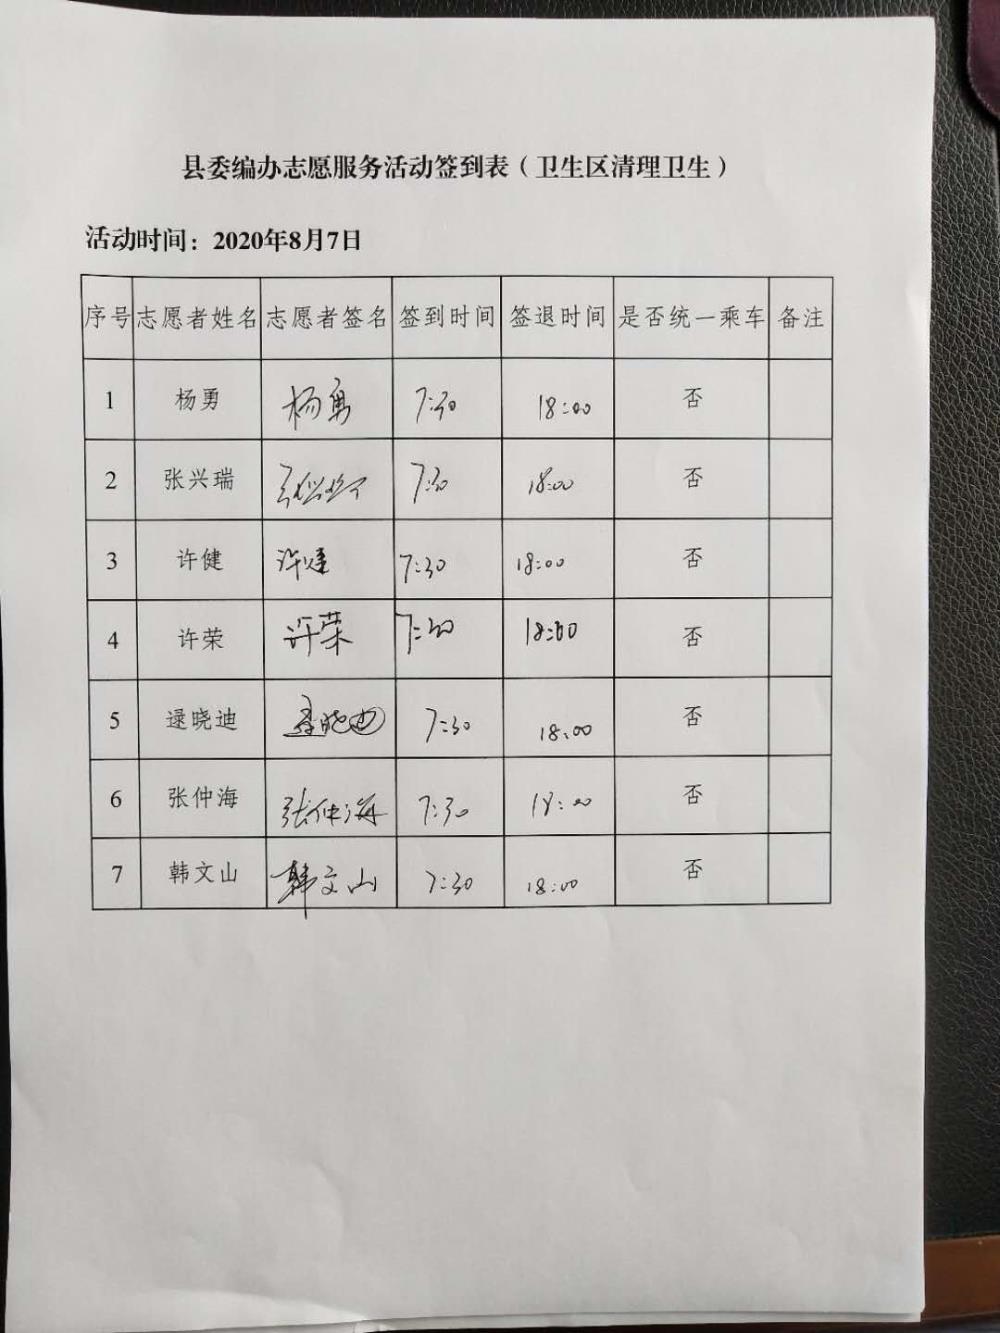 县委编办志愿服务活动签到表（卫生区清理卫生）
活动时间：2020年8月7日
序号 志愿者姓名 志愿者签名 签到时间 签退时间 是否统一乘车 备注
1 杨勇 杨勇 7:30 18:00 否
2 张兴瑞 张兴瑞 7:30 18:00 否
3 许健 许健 7:30 18:00 否
4 许荣 许荣 7:30 18:00 否
5 逯晓迪 逯晓迪 7:30 18:00 否
6 张仲海 张仲海 7:30 18:00 否
7 韩文山 韩文山 7:30 18:00 否